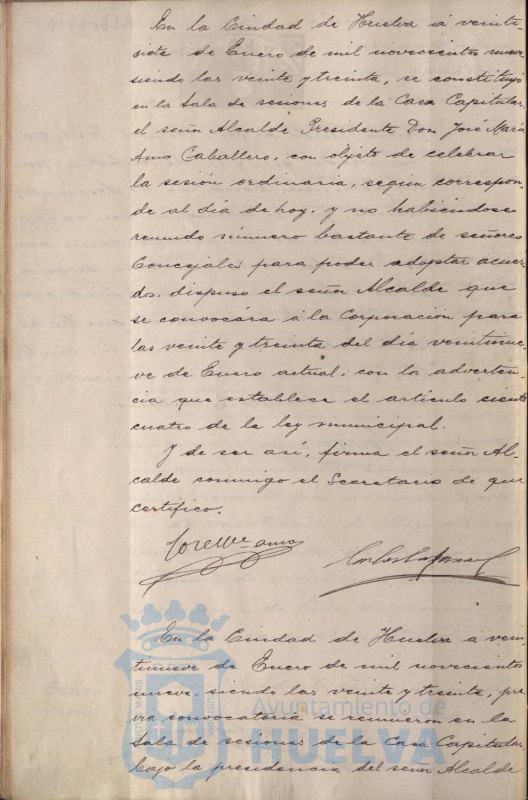 En la Ciudad de Huelva á veinti-
siete de Enero de mil novecientos nueve
siendo las veinte y treinta, se constituyó
en la Sala de sesiones de la Casa Capitular
el señor Alcalde Presidente Don José María
Amo Caballero, con objeto de celebrar
la sesión ordinaria, segun correspon-
de al dia de hoy, y no habiéndose
reunido número bastante de señores
Concejales para poder adoptar acuer-
dos, dispuso el señor Alcalde que
se convocára á la Corporación para
las veinte y treinta del dia veintinue-
ve de Enero actual, con la adverten-
cia que establece el artículo ciento
cuatro de la ley municipal.
Y de ser así, firma el señor Al-
calde conmigo el Secretario de que
certifico.
En la Ciudad de Huelva á vein-
tinueve de Enero de mil novecientos
nueve, siendo las veinte y treinta, pré-
via convocatoria se reunieron en la
Sala de sesiones de la Casa Capitular
bajo la presidencia del señor Alcalde
Ayuntamiento de
HUELVA